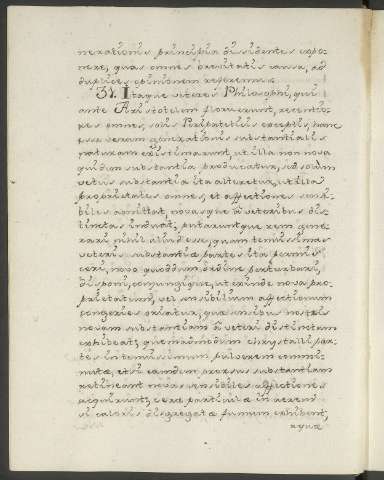 nerationis principia dissidentes expo-
nere, quas omnes brevitatis causa, ad
duplicem opinionem referemus.
31. Itaque veteres Philosophi, qui
ante Aristotelem floruerunt, recentio-
res omnes, solis Peripateticis exceptis, hanc
esse veram generationis substantialis
naturam existimarunt, ut illa non nova
quidem substantia producatur, sed solum
vetus substantia ita alteretur, ut illa
proprietates omnes, et affectiones sensi-
biles admittat, novasque a veteribus dis-
tinctas induat, putaruntque rem gene-
rari nihil aliud esse, quam tenuissimas
veteris substantiae partes ita permis-
ceri, novo quodam ordine perturbari,
disponi, conjungique, ut exinde nova pro-
prietatum, vel sensibilium affectionum
congeries oriatur, quae sensibus nostris
novam substantiam a veteri distinctam
exhibeat; quemadmodum chrystalli par-
tes in tenuissimum pulverem commi-
nutae, etsi eandem prorsus substantiam
retineant novas sensibiles affectiones
acquirunt; cerae particulae in aerem
vi caloris disgregatae fumum exhibent,
aquae